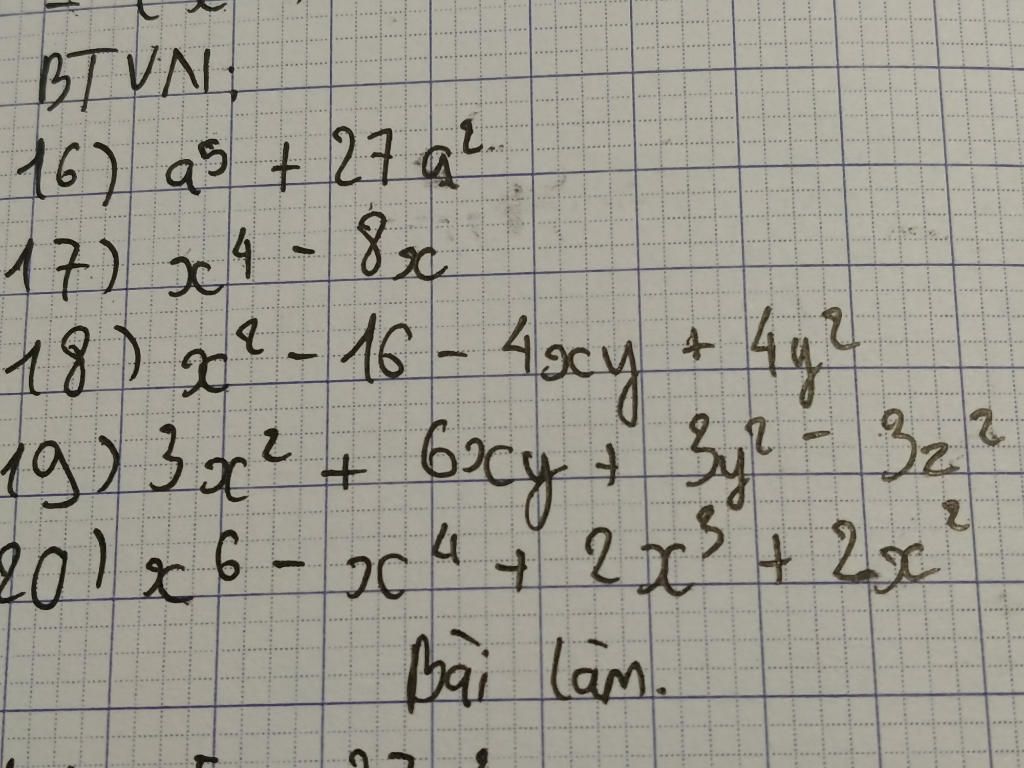 BTVN:
16) a⁵ + 27a²
17) x⁴ - 8x
18) x² - 16 - 4xy + 4y²
19) 3x² + 6xy + 3y² - 3z²
20) x⁶ - x⁴ + 2x³ + 2x²
Bài làm.